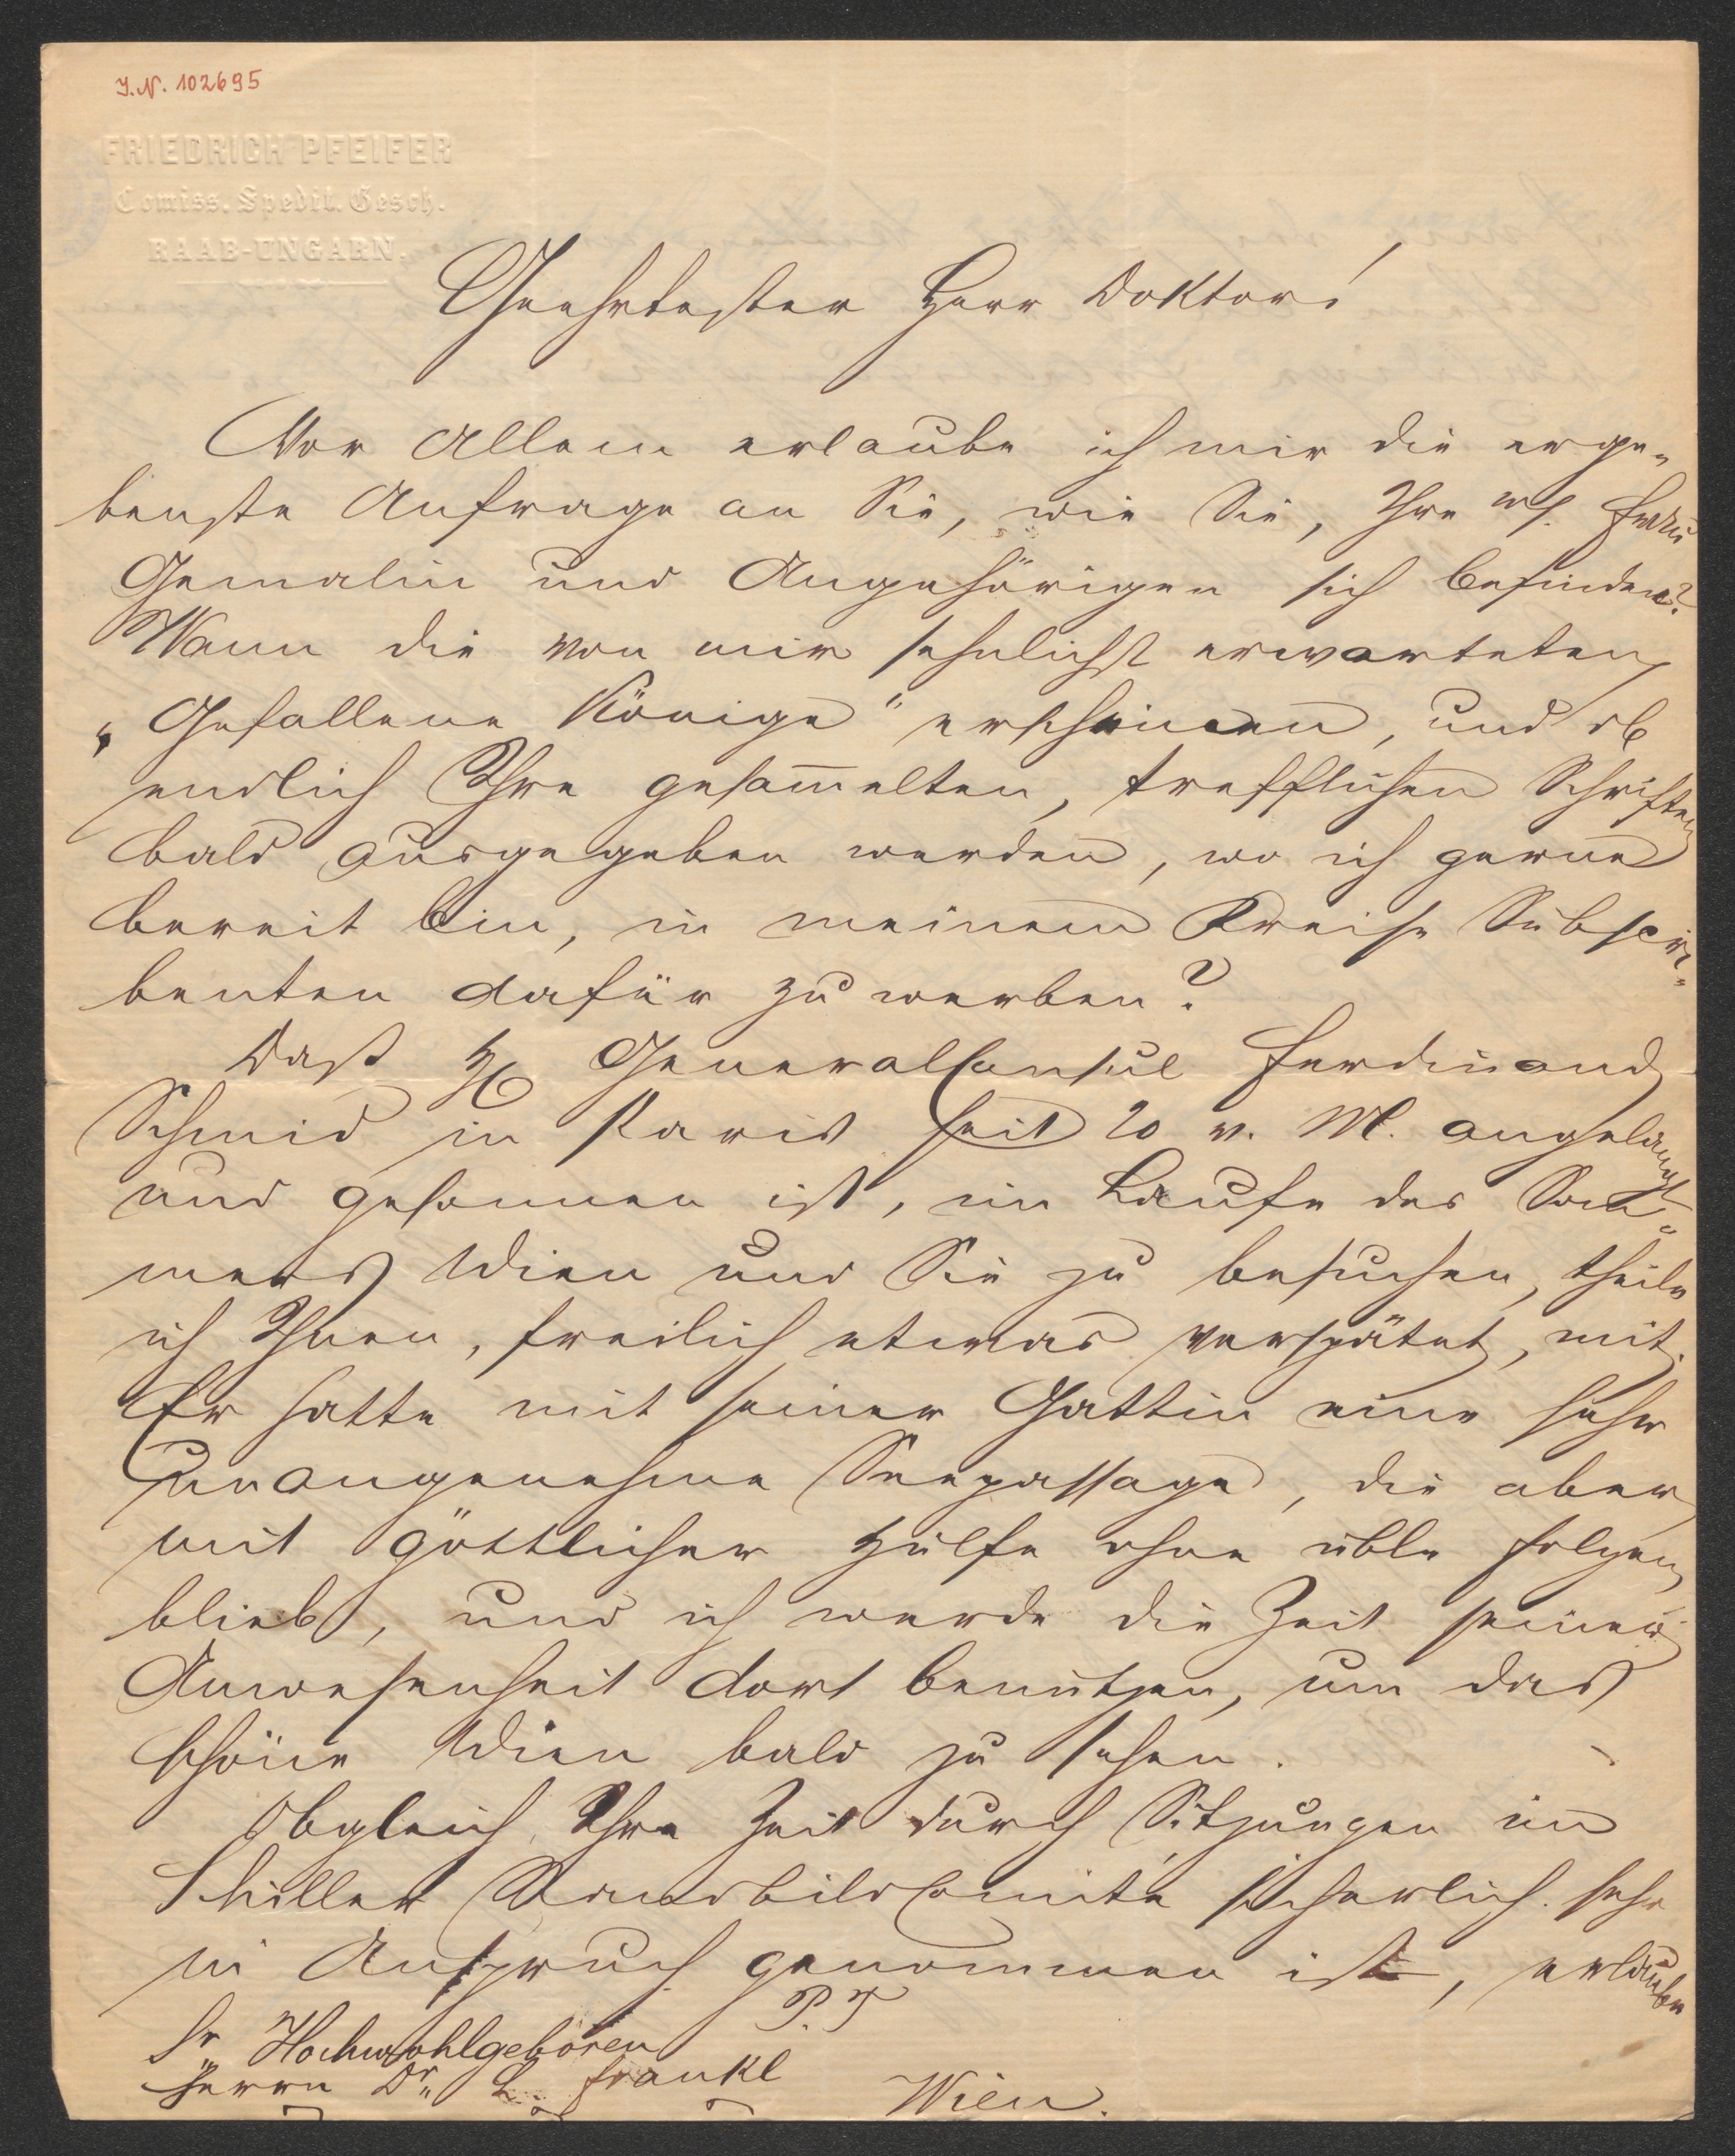 I.N. 102695
FRIEDRICH PFEIFER
Comiss. Spedit. Gesch.
RAAB-UNGARN.
Geehrtester Herr Doktor!
Vor Allem erlaube ich mir die erge-
benste Anfrage an Sie, wie Sie, Ihre w. Frau
Gemalin und Angehörigen sich befinden?
Wann die von mir sehnlichst erwarteten
„Gefallene Könige" erscheinen, und ob
endlich Ihre gesam̅elten, trefflichen Schriften
bald ausgegeben werden, wo ich gerne
bereit bin, in meinem Kreise Subscri-
benten dafür zu werben?
Dass H. Generalconsul Ferdinand
Schmid in Paris seit 20 v. M. angelangt
und gesonnen ist, im Laufe des Som-
mers Wien und Sie zu besuchen, theile
ich Ihnen, freilich etwas verspätet, mit.
Er hatte mit seiner Gattin eine sehr
unangenehme Seepassage, die aber
mit göttlicher Hülfe ohne üble Folgen
blieb, und ich werde die Zeit seiner
Anwesenheit dort benützen, um das
schöne Wien bald zu sehen.
Obgleich Ihre Zeit durch Sitzungen im
Schiller Standbild Comité sicherlich sehr
in Anspruch genommen ist, erlaube
P. T
Sr Hochwohlgeboren
Herrn Dr. L. Frankl
Wien.